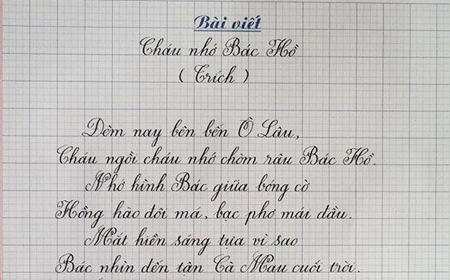 Bài viết
Cháu nhớ Bác Hồ
( Trích )
Đêm nay bên bến Ô Lâu,
Cháu ngồi cháu nhớ chòm râu Bác Hồ.
Nhớ hình Bác giữa bóng cờ
Hồng hào đôi má, bạc phơ mái đầu.
Mắt hiền sáng tựa vì sao
Bác nhìn đến tận Cà Mau cuối trời.